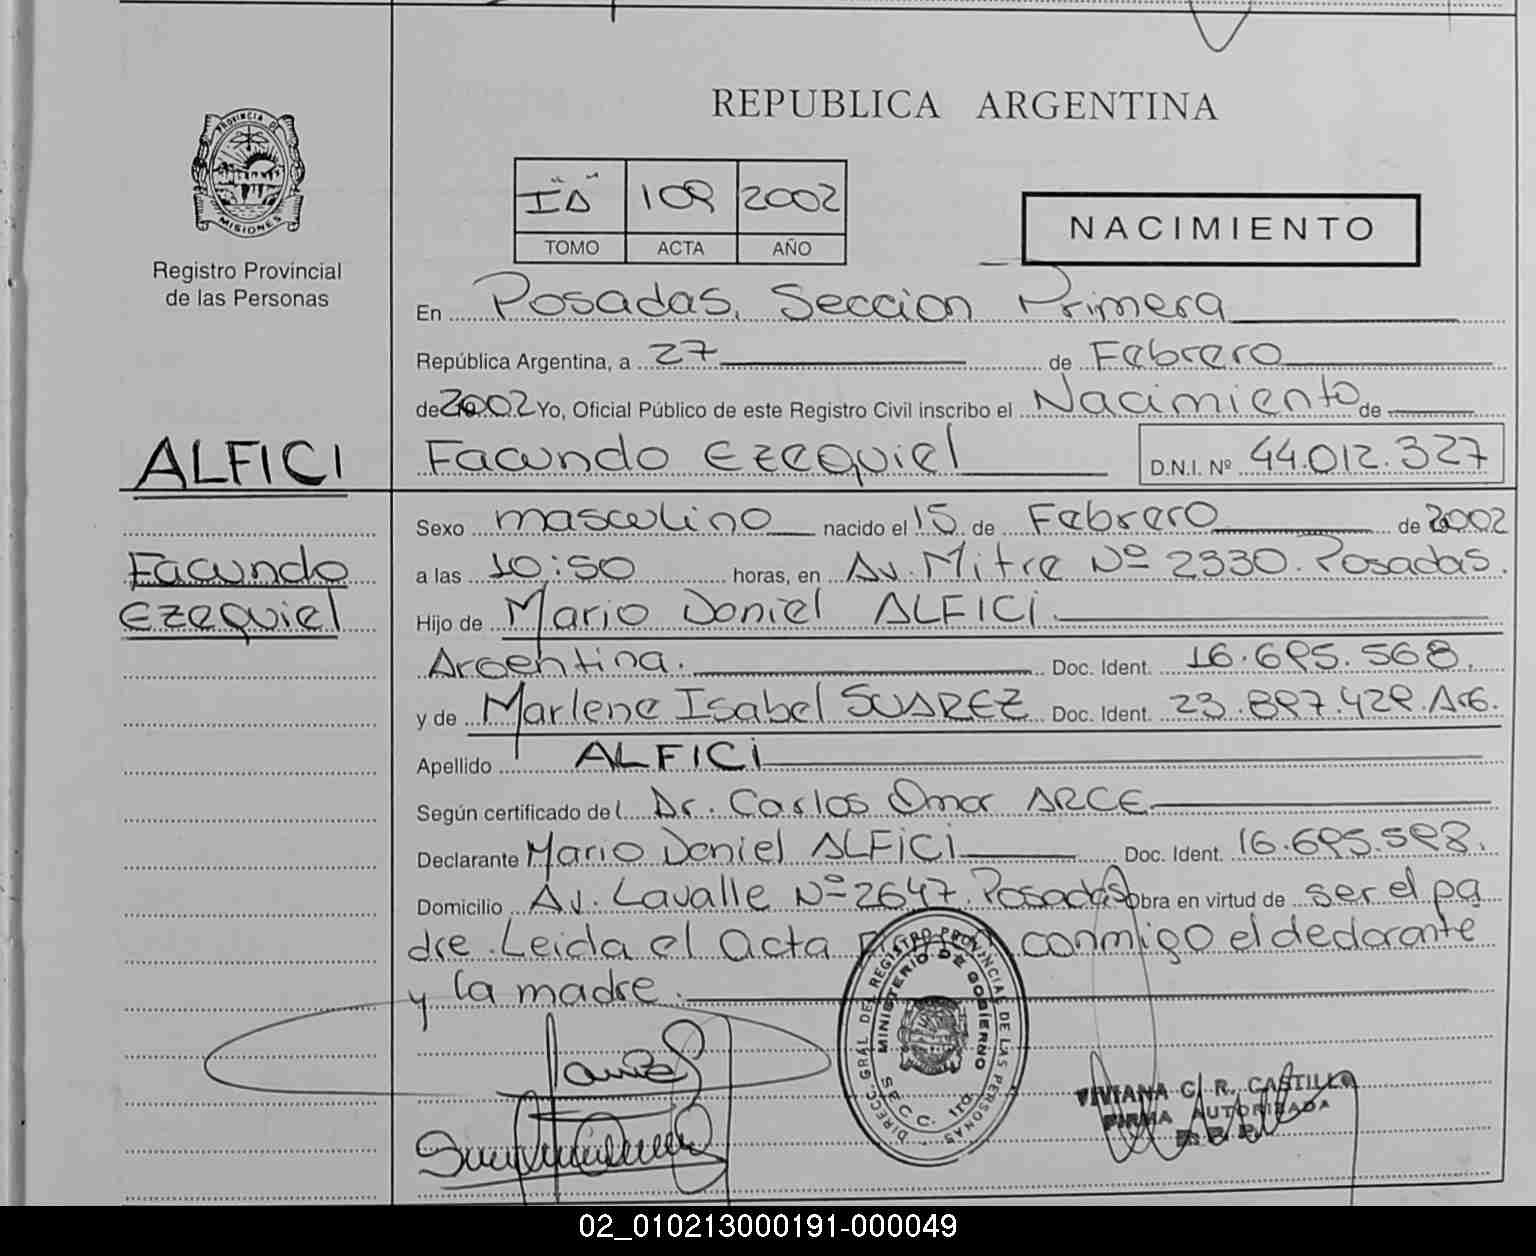 REPUBLICA ARGENTINA
PROVINCIA DE
MISIONES
Registro Provincial
de las Personas
"
I A 109 2002
TOMO ACTA AÑO
NACIMIENTO
En Posadas, Seccion Primera
República Argentina, a 27 de Febrero
de 2002 Yo, Oficial Público de este Registro Civil inscribo el Nacimiento de
ALFICI
Facundo Ezequiel D.N.I. Nº 44.012.327
Sexo masculino nacido el 15 de Febrero de 2002
Facundo
a las 10:50 horas, en Av. Mitre Nº 2330. Posadas.
Ezequiel
Hijo de Mario Daniel ALFICI
Argentina. Doc. Ident. 16.695.568.
y de Marlene Isabel SUAREZ Doc. Ident. 23.897.429. Arg.
Apellido ALFICI
Según certificado del Dr. Carlos Omar ARCE
Declarante Mario Daniel ALFICI Doc. Ident. 16.695.598.
Domicilio Av. Lavalle Nº 2647. Posadas Obra en virtud de ser el pa
dre. Leida el acta conmigo el declarante
y la madre.
DIRECC. GRAL DEL REGISTRO PROVINCIAL DE LAS PERSONAS
MINISTERIO DE GOBIERNO
SECC. 1ra.
VIVIANA C. R. CASTILLO
FIRMA AUTORIZADA
02_010213000191-000049